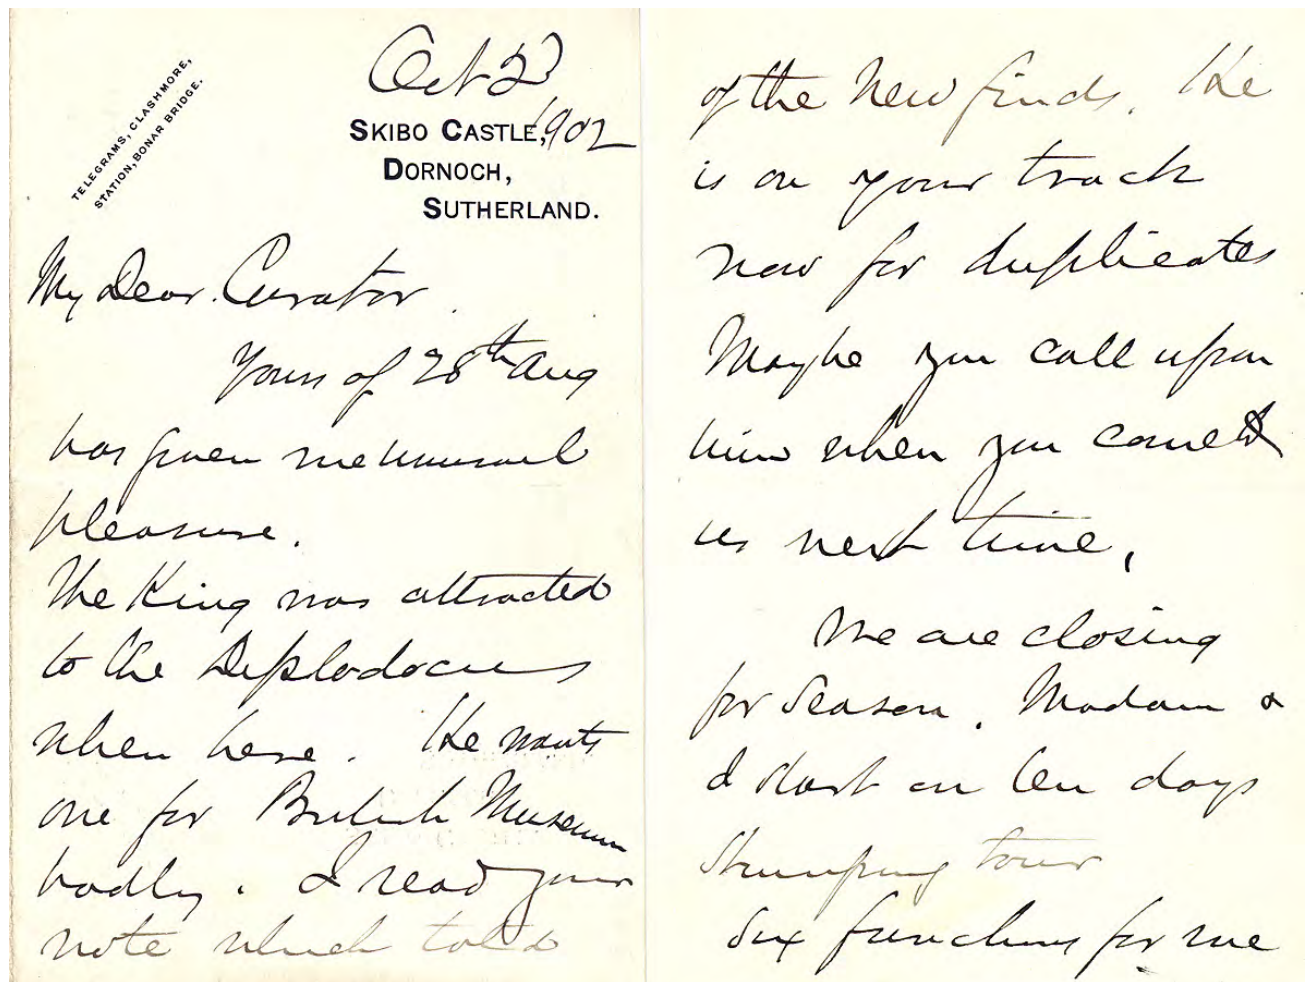 TELEGRAMS, CLASHMORE,
STATION, BONAR BRIDGE.
Oct 2
SKIBO CASTLE, 1902
DORNOCH,
SUTHERLAND.
My Dear Curator
Yours of 28th Aug
has given me unusual
pleasure.
The King was attracted
to the Diplodocus
when here. He wants
one for British Museum
badly. I read your
note which told
of the new finds. He
is on your track
now for duplicates
Maybe you call upon
him when you come to
us next time,
We are closing
for Season. Madam &
I start on ten days
stumping tour
Six functions for me